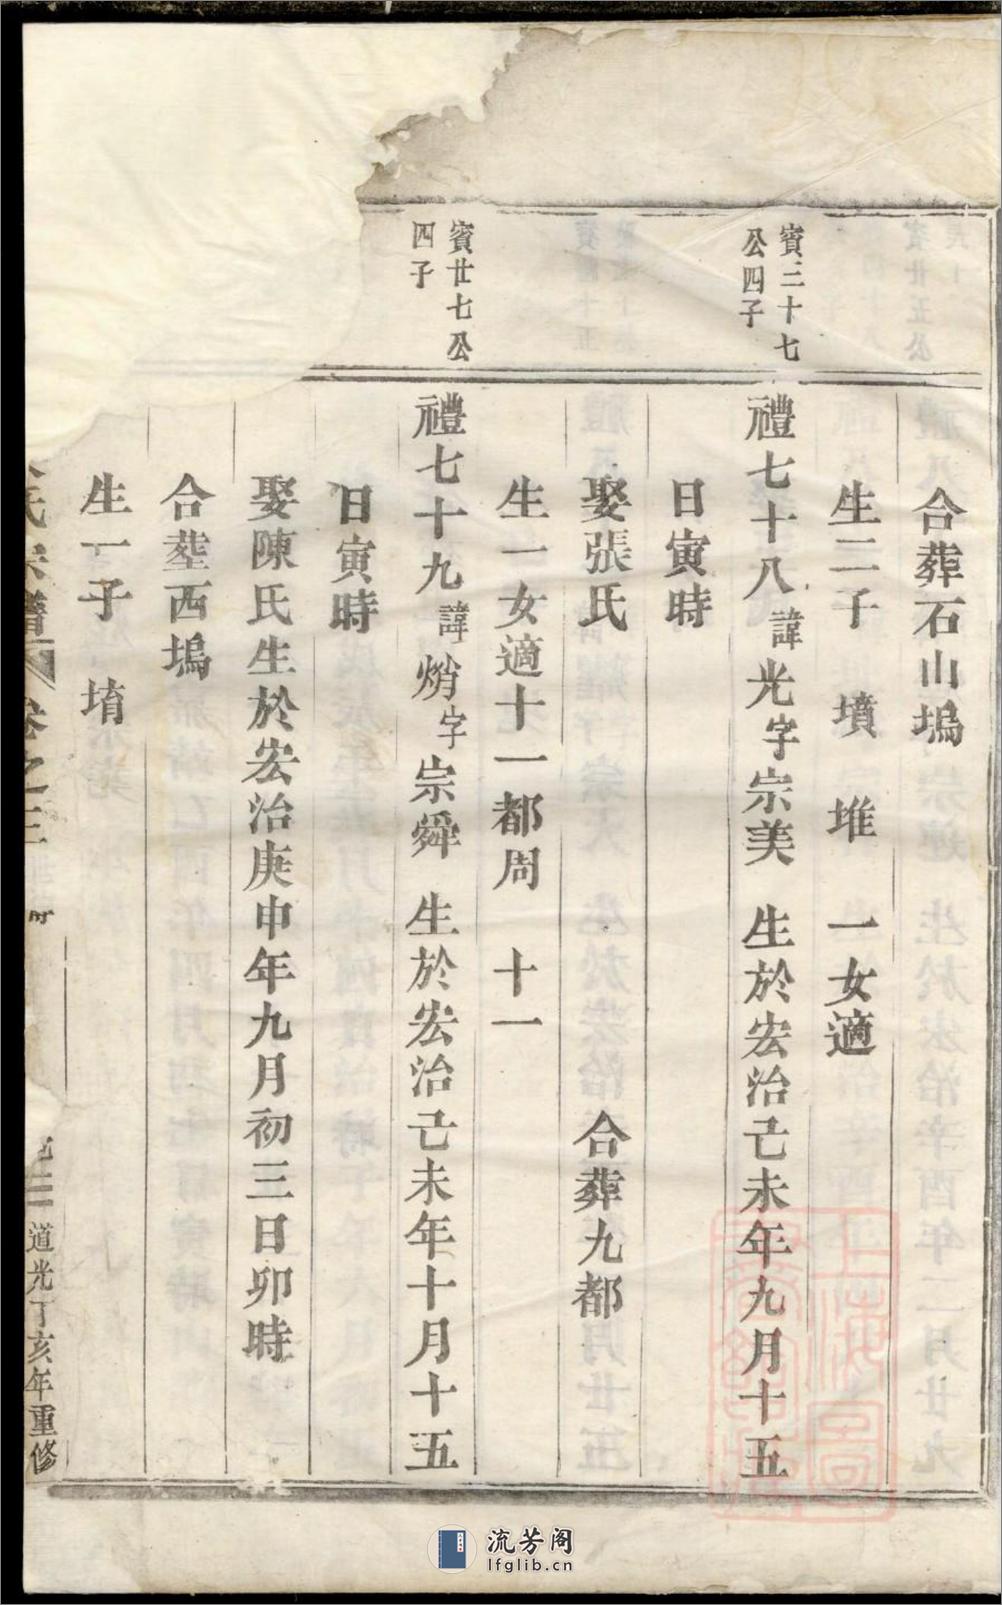 合葬石山塢
生二子 墳 堆 一女適
賓三十七
公四子
禮七十八諱光字宗美 生於宏治己未年九月十五
日寅時
娶張氏 合葬九都
生一女適十一都周 十一
賓廿七公
四子
禮七十九諱焇字宗舜 生於宏治己未年十月十五
日寅時
娶陳氏生於宏治庚申年九月初三日卯時
合塟西塢
生一子 堉
氏宗譜 卷之三
道光丁亥年重修
流芳阁
lfglib.cn